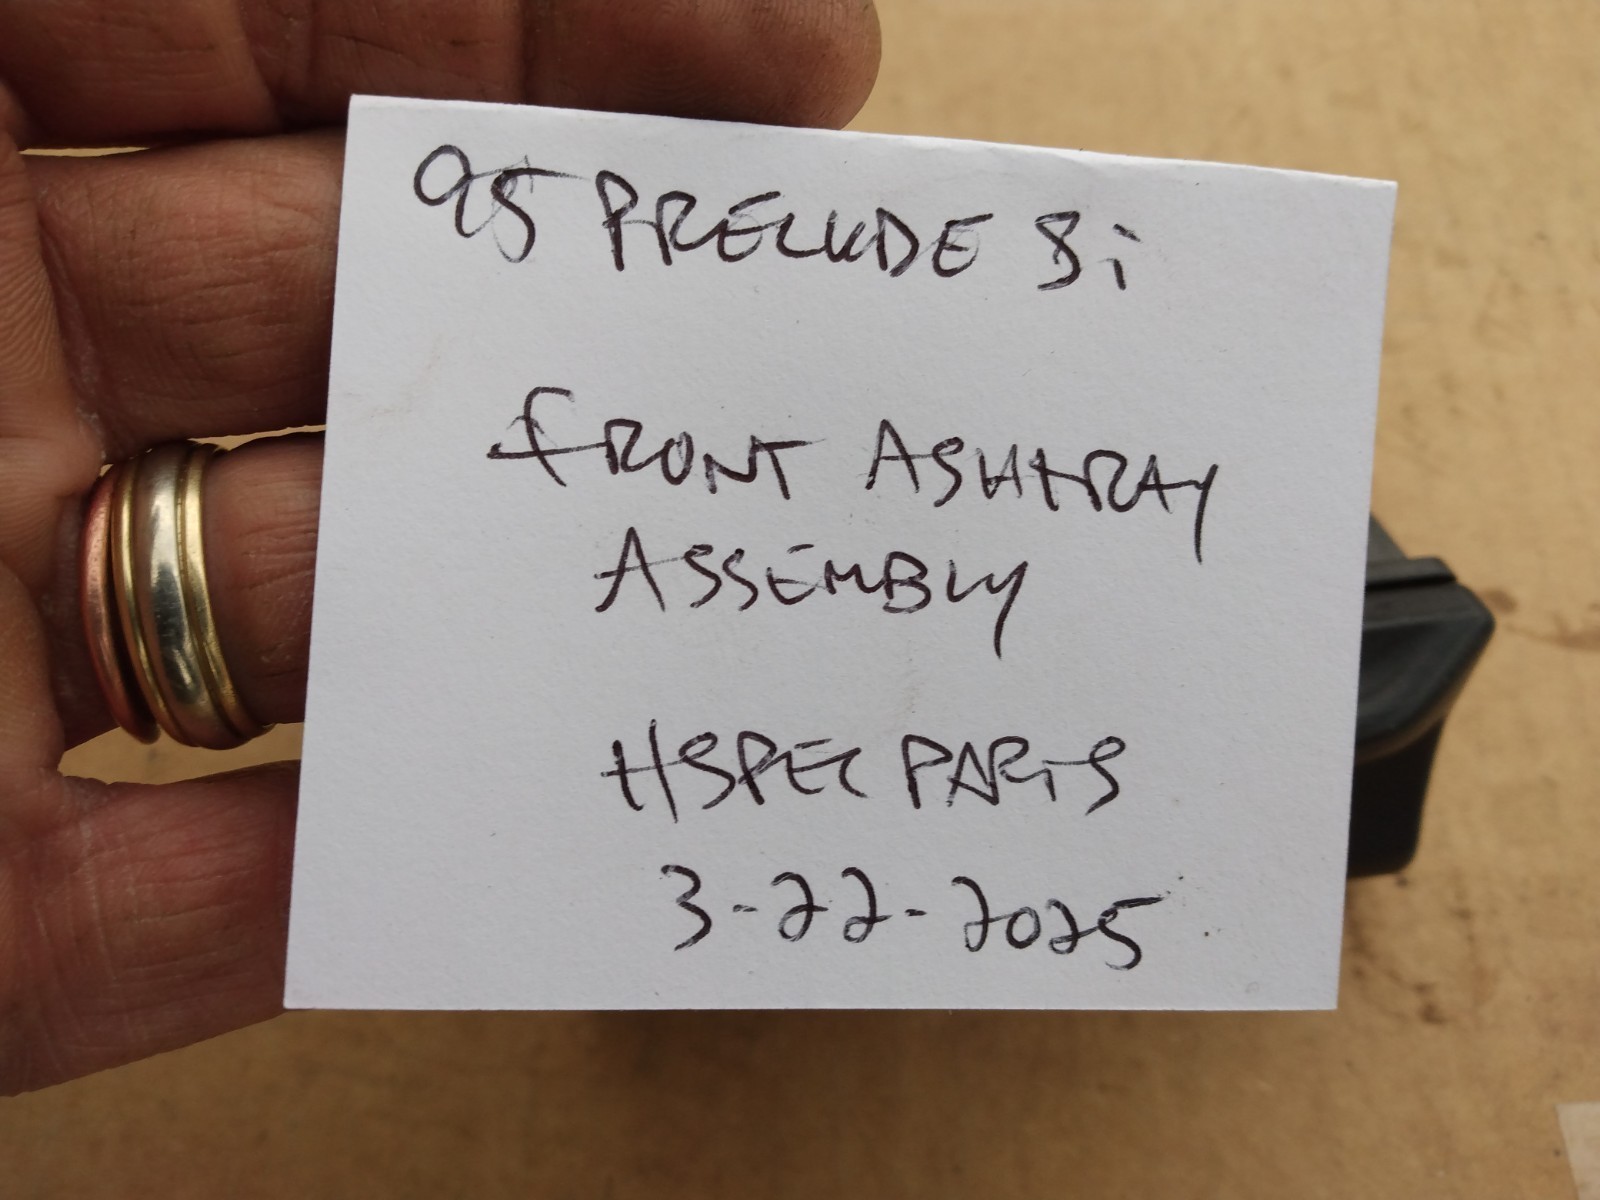 95 PRELUDE Si
FRONT ASHTRAY
ASSEMBLY
HSPEC PARTS
3-22-2025